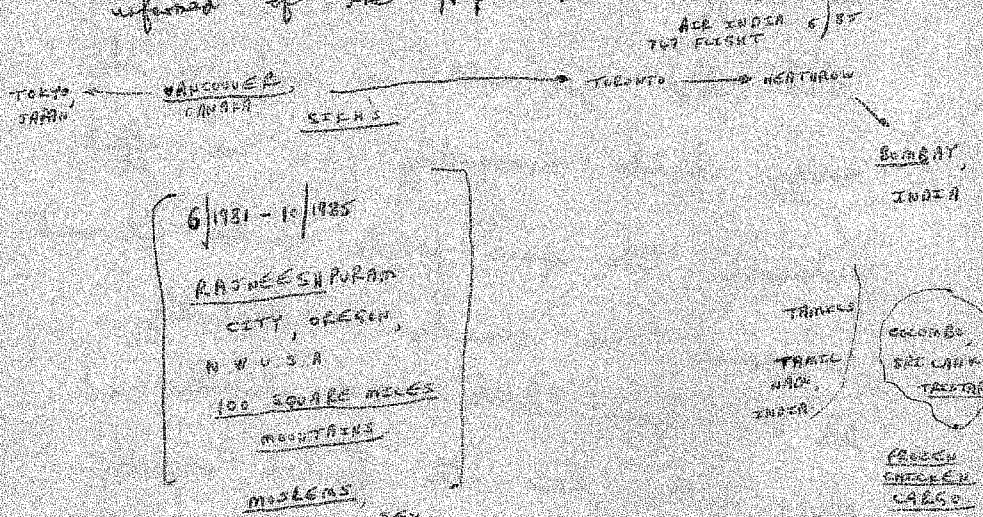 informed of the
AIR INDIA 6/85.
747 FLIGHT
TOKYO, JAPAN
VANCOUVER, CANADA
SIKHS
TORONTO
HEATHROW
BOMBAY,
INDIA
6/1981 - 10/1985
RAJNEESHPURAM
CITY, OREGON,
N W U.S.A
100 SQUARE MILES
MOUNTAINS
MOSLEMS,
TAMILS
TAMIL
NADU,
INDIA
COLOMBO,
SRI LANK
TRISTAR
FROZEN
CHICKEN
CARGO